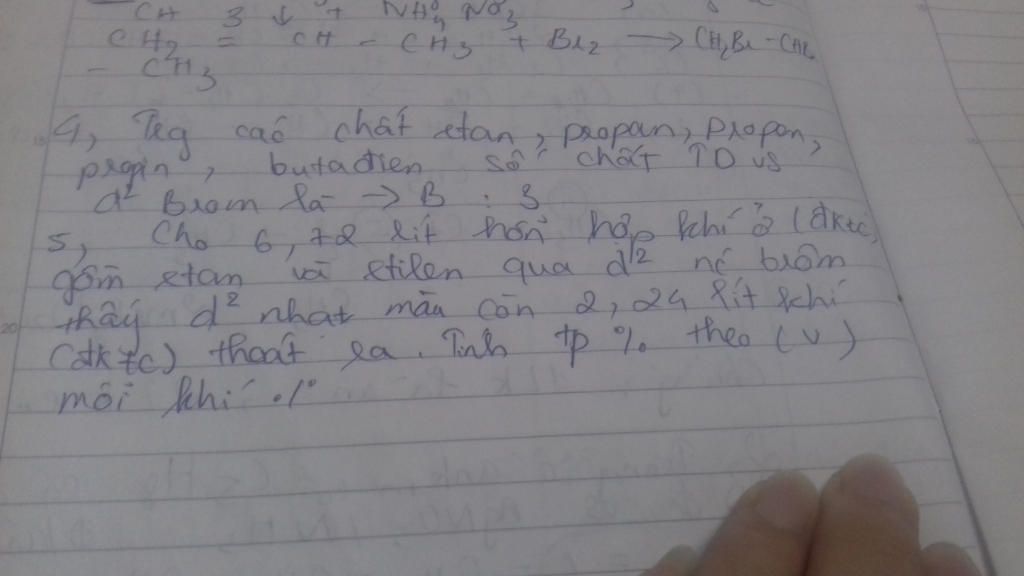 CH 3 ↓ + NH4 NO3
CH2 = CH - CH3 + Br2 → CH2Br - CHBr
- CH3
4, Trg caó chất etan, propan, propan,
propin, butađien số chất TD vs
d² Brom là → B : 3
5, Cho 6,72 lít hỗn hợp khí ở (đktc)
gồm etan và etilen qua d² nc brôm
thấy d² nhạt màu còn 2,24 lít khí
(đktc) thoát ra. Tính tp % theo (v)
mỗi khí ·/°